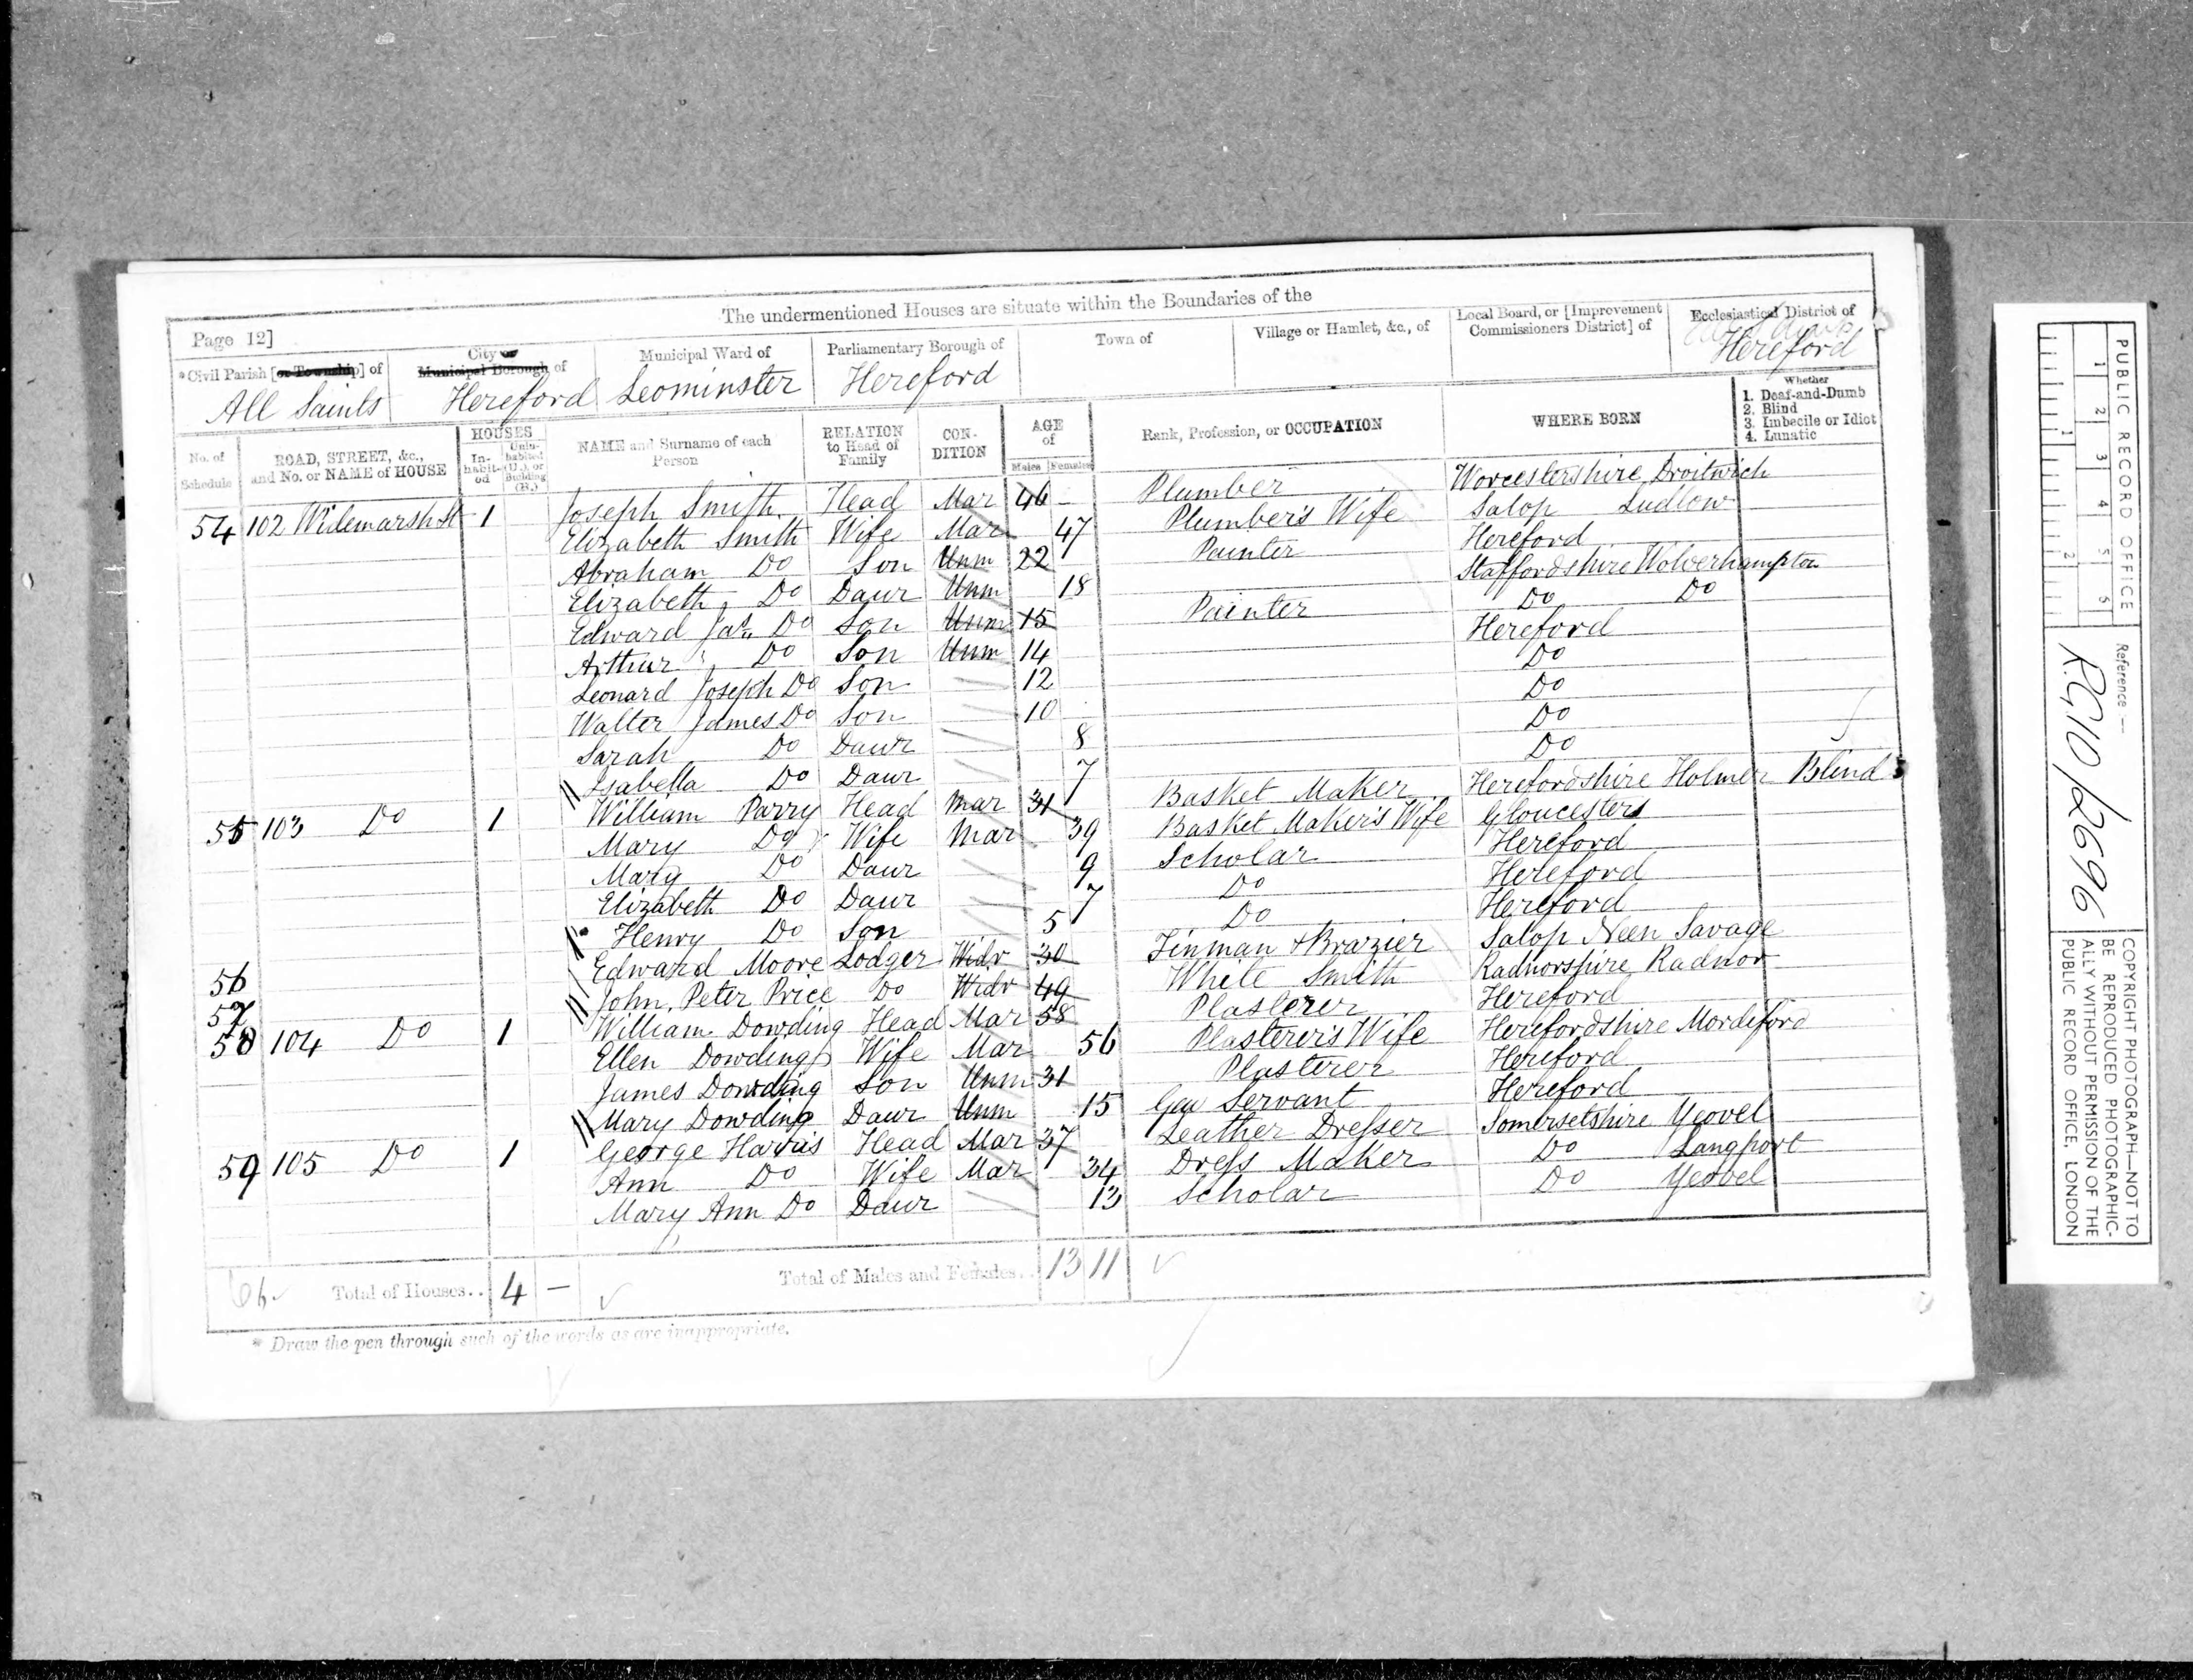 The undermentioned Houses are situate within the Boundaries of the
Page 12]
*Civil Parish [or Township] of
All Saints
City or Municipal Borough of
Hereford
Municipal Ward of
Leominster
Parliamentary Borough of
Hereford
Town of
Village or Hamlet, &c., of
Local Board, or [Improvement Commissioners District] of
Ecclesiastical District of
Hereford
No. of Schedule
ROAD, STREET, &c., and No. or NAME of HOUSE
HOUSES
In-habit-ed
Unin-habited (U.), or Building (B.)
NAME and Surname of each Person
RELATION to Head of Family
CON-DITION
AGE of
Males Females
Rank, Profession, or OCCUPATION
WHERE BORN
Whether
1. Deaf-and-Dumb
2. Blind
3. Imbecile or Idiot
4. Lunatic
54 102 Widemarsh St 1 Joseph Smith Head Mar 46 - Plumber Worcestershire Droitwich
Elizabeth Smith Wife Mar 47 Plumber's Wife Salop Ludlow
Abraham Do Son Unm 22 Painter Hereford
Elizabeth Do Daur Unm 18 Staffordshire Wolverhampton
Edward Do Son Unm 15 Painter Do Do
Arthur Do Son Unm 14 Hereford
Leonard Joseph Do Son 12 Do
Walter James Do Son 10 Do
Sarah Do Daur 8 Do
Isabella Do Daur 7 Do
55 103 Do 1 William Parry Head Mar 31 Basket Maker Herefordshire Holmer Blind
Mary Do Wife Mar 39 Basket Maker's Wife Gloucesters
Mary Do Daur 9 Scholar Hereford
Elizabeth Do Daur 7 Do Hereford
Henry Do Son 5 Do Hereford
56 Edward Moore Lodger Widr 30 Tinman & Brazier Salop Neen Savage
57 John Peter Price Do Widr 49 White Smith Radnorshire Radnor
58 104 Do 1 William Dowding Head Mar 58 Plasterer Hereford
Ellen Dowding Wife Mar 56 Plasterer's Wife Herefordshire Mordiford
James Dowding Son Unm 31 Plasterer Hereford
Mary Dowding Daur Unm 15 Gen Servant Hereford
59 105 Do 1 George Harris Head Mar 37 Leather Dresser Somersetshire Yeovel
Ann Do Wife Mar 34 Dress Maker Do Langport
Mary Ann Do Daur 13 Scholar Do Yeovel
Total of Houses.. 4 — Total of Males and Females.. 13 11
* Draw the pen through such of the words as are inappropriate.
PUBLIC RECORD OFFICE
1 2 3 4 5 6
1 2
Reference:—
R.G.10/2696
COPYRIGHT PHOTOGRAPH—NOT TO
BE REPRODUCED PHOTOGRAPHIC-
ALLY WITHOUT PERMISSION OF THE
PUBLIC RECORD OFFICE, LONDON